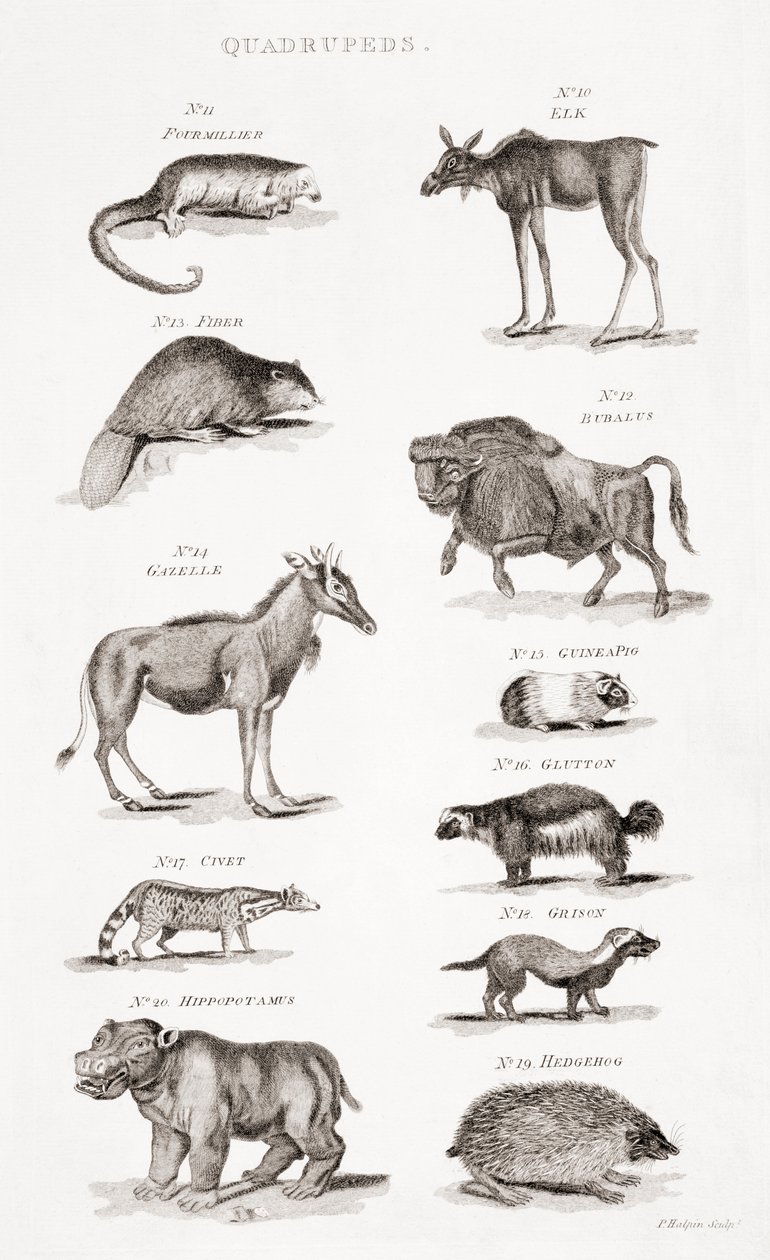 QUADRUPEDS.
No. 11
FOURMILLIER
No. 10
ELK
No. 13. FIBER
No. 12.
BUBALUS
No. 14
GAZELLE
No. 15. GUINEA PIG
No. 16. GLUTTON
No. 17. CIVET
No. 18. GRISON
No. 20. HIPPOPOTAMUS
No. 19. HEDGEHOG
P. Halpin Sculpt.